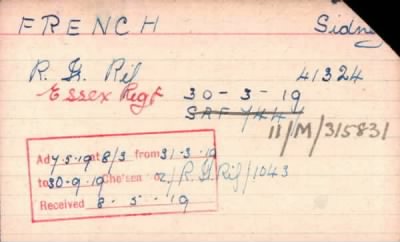 FRENCH Sidney
R. Ir. Rif 41324
Essex Regt 30-3-19
SRF 744
11/M/315831
Ad 7.5.19 at 8/3 from 31-3-19
to 30-9-19 Chelsea or/R.Ir.Rif/1043
Received 8 . 5 . 19